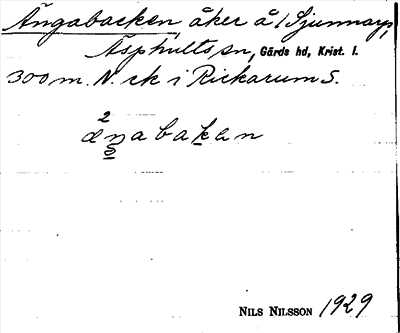 Ängabacken, åker å 1 Sjunnarp,
Äsphults sn, Gärds hd, Krist. l.
300 m. N. ek i Rickarum 5.
2
ængabakan
NILS NILSSON 1929